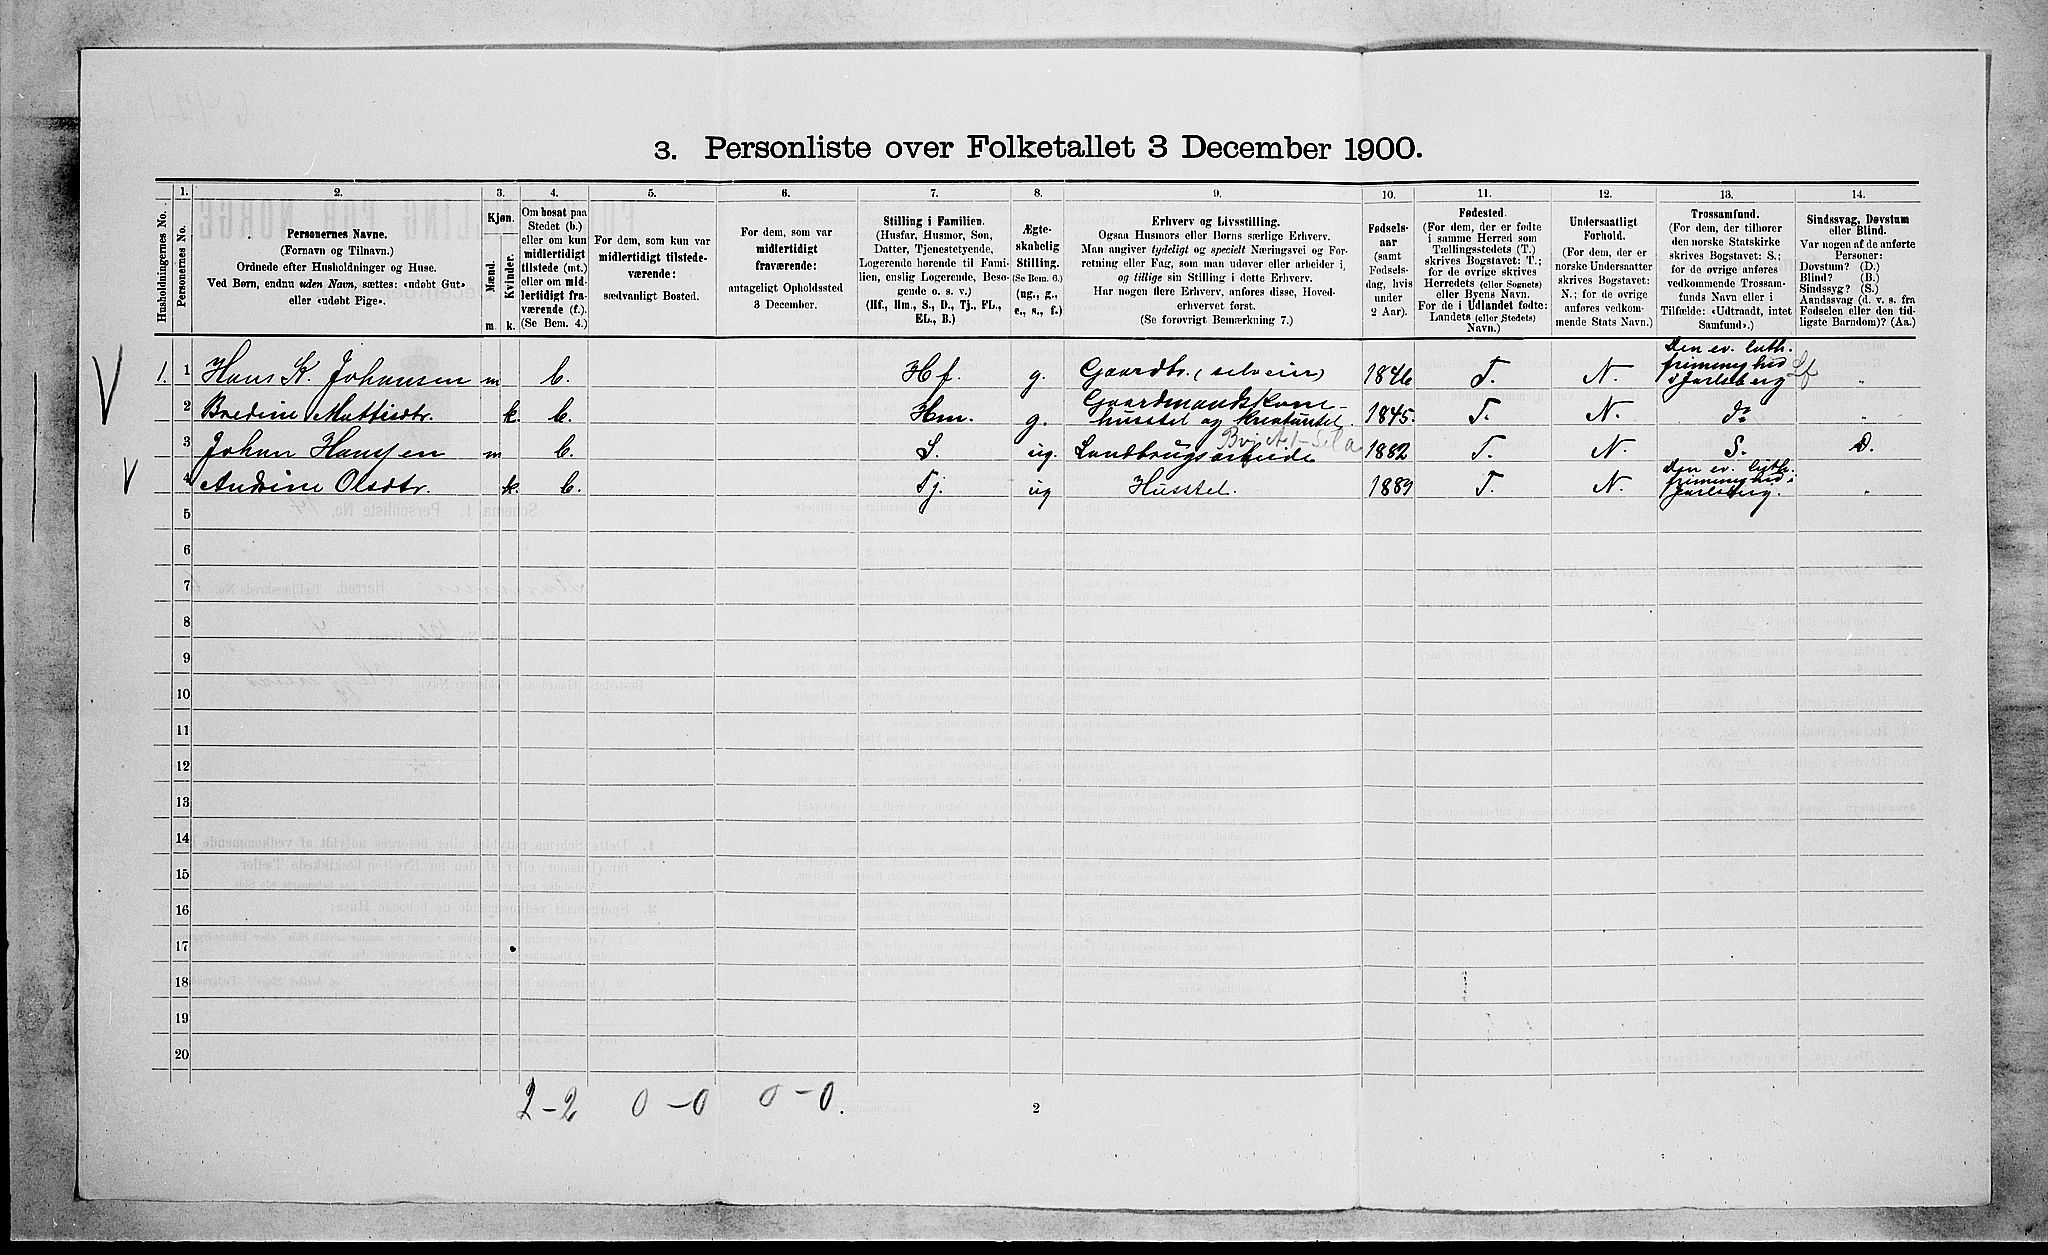 3. Personliste over Folketallet 3 December 1900.
Husholdningernes No.
1.
Personernes No.
2.
Personernes Navne.
(Fornavn og Tilnavn.)
Ordnede efter Husholdninger og Huse.
Ved Børn, endnu uden Navn, sættes: «udøbt Gut»
eller «udøbt Pige».
3.
Kjøn.
Mænd.
Kvinder.
m. k.
4.
Om bosat paa
Stedet (b.)
eller om kun
midlertidigt
tilstede (mt.)
eller om mid-
lertidigt fra-
værende (f.).
(Se Bem. 4.)
5.
For dem, som kun var
midlertidigt tilstede-
værende:
sædvanligt Bosted.
6.
For dem, som var
midlertidigt
fraværende:
antageligt Opholdssted
3 December.
7.
Stilling i Familien.
(Husfar, Husmor, Søn,
Datter, Tjenestetyende,
Logerende hørende til Fami-
lien, enslig Logerende, Besø-
gende o. s. v.)
(Hf., Hm., S., D., Tj., FL.,
EL., B.)
8.
Ægte-
skabelig
Stilling.
(Se Bem. 6.)
(ug., g.,
e., s., f.)
9.
Erhverv og Livsstilling.
Ogsaa Husmors eller Børns særlige Erhverv.
Man angiver tydeligt og specielt Næringsvei og For-
retning eller Fag, som man udøver eller arbeider i,
og tillige sin Stilling i dette Erhverv.
Har nogen flere Erhverv, anføres disse, Hoved-
erhvervet først.
(Se forøvrigt Bemærkning 7.)
10.
Fødsels-
aar
(samt
Fødsels-
dag, hvis
under
2 Aar).
11.
Fødested.
(For dem, der er fødte
i samme Herred som
Tællingsstedets (T.)
skrives Bogstavet: T.;
for de øvrige skrives
Herredets (eller Sognets)
eller Byens Navn.
For de i Udlandet fødte:
Landets (eller Stedets)
Navn.)
12.
Undersaatligt
Forhold.
(For dem, der er
norske Undersaatter
skrives Bogstavet:
N.; for de øvrige
anføres vedkom-
mende Stats Navn.)
13.
Trossamfund.
(For dem, der tilhører
den norske Statskirke
skrives Bogstavet: S.;
for de øvrige anføres
vedkommende Trossam-
funds Navn eller i
Tilfælde: «Udtraadt, intet
Samfund».)
14.
Sindssvag, Døvstum
eller Blind.
Var nogen af de anførte
Personer:
Døvstum? (D.)
Blind? (B.)
Sindssyg? (S.)
Aandssvag (d. v. s. fra
Fødselen eller den tid-
ligste Barndom)? (Aa.)
V 1. 1 Hans K. Johansen m b. Hf. g. Gaardbr. (selveier) 1846 T. N. Den ev. luth. frimenighed i Jarlsberg Lf „
2 Bredine Mattisdtr. k. b. Hm. g. Gaardmandskone- husstel og kreaturstel. 1845. T. N. do „
3 Johan Hanssen m b. S. ug. Landbrugsarbeide 1882 T. N. S. D.
V 4 Andrine Olsdtr. k. b. Tj. ug Husstel. 1889 T. N. Den ev. luth. frimenighed i Jarlsberg. „
5
6
7
8
9
10
11
12
13
14
15
16
17
18
19
20
2-2 0-0 0-0.
2